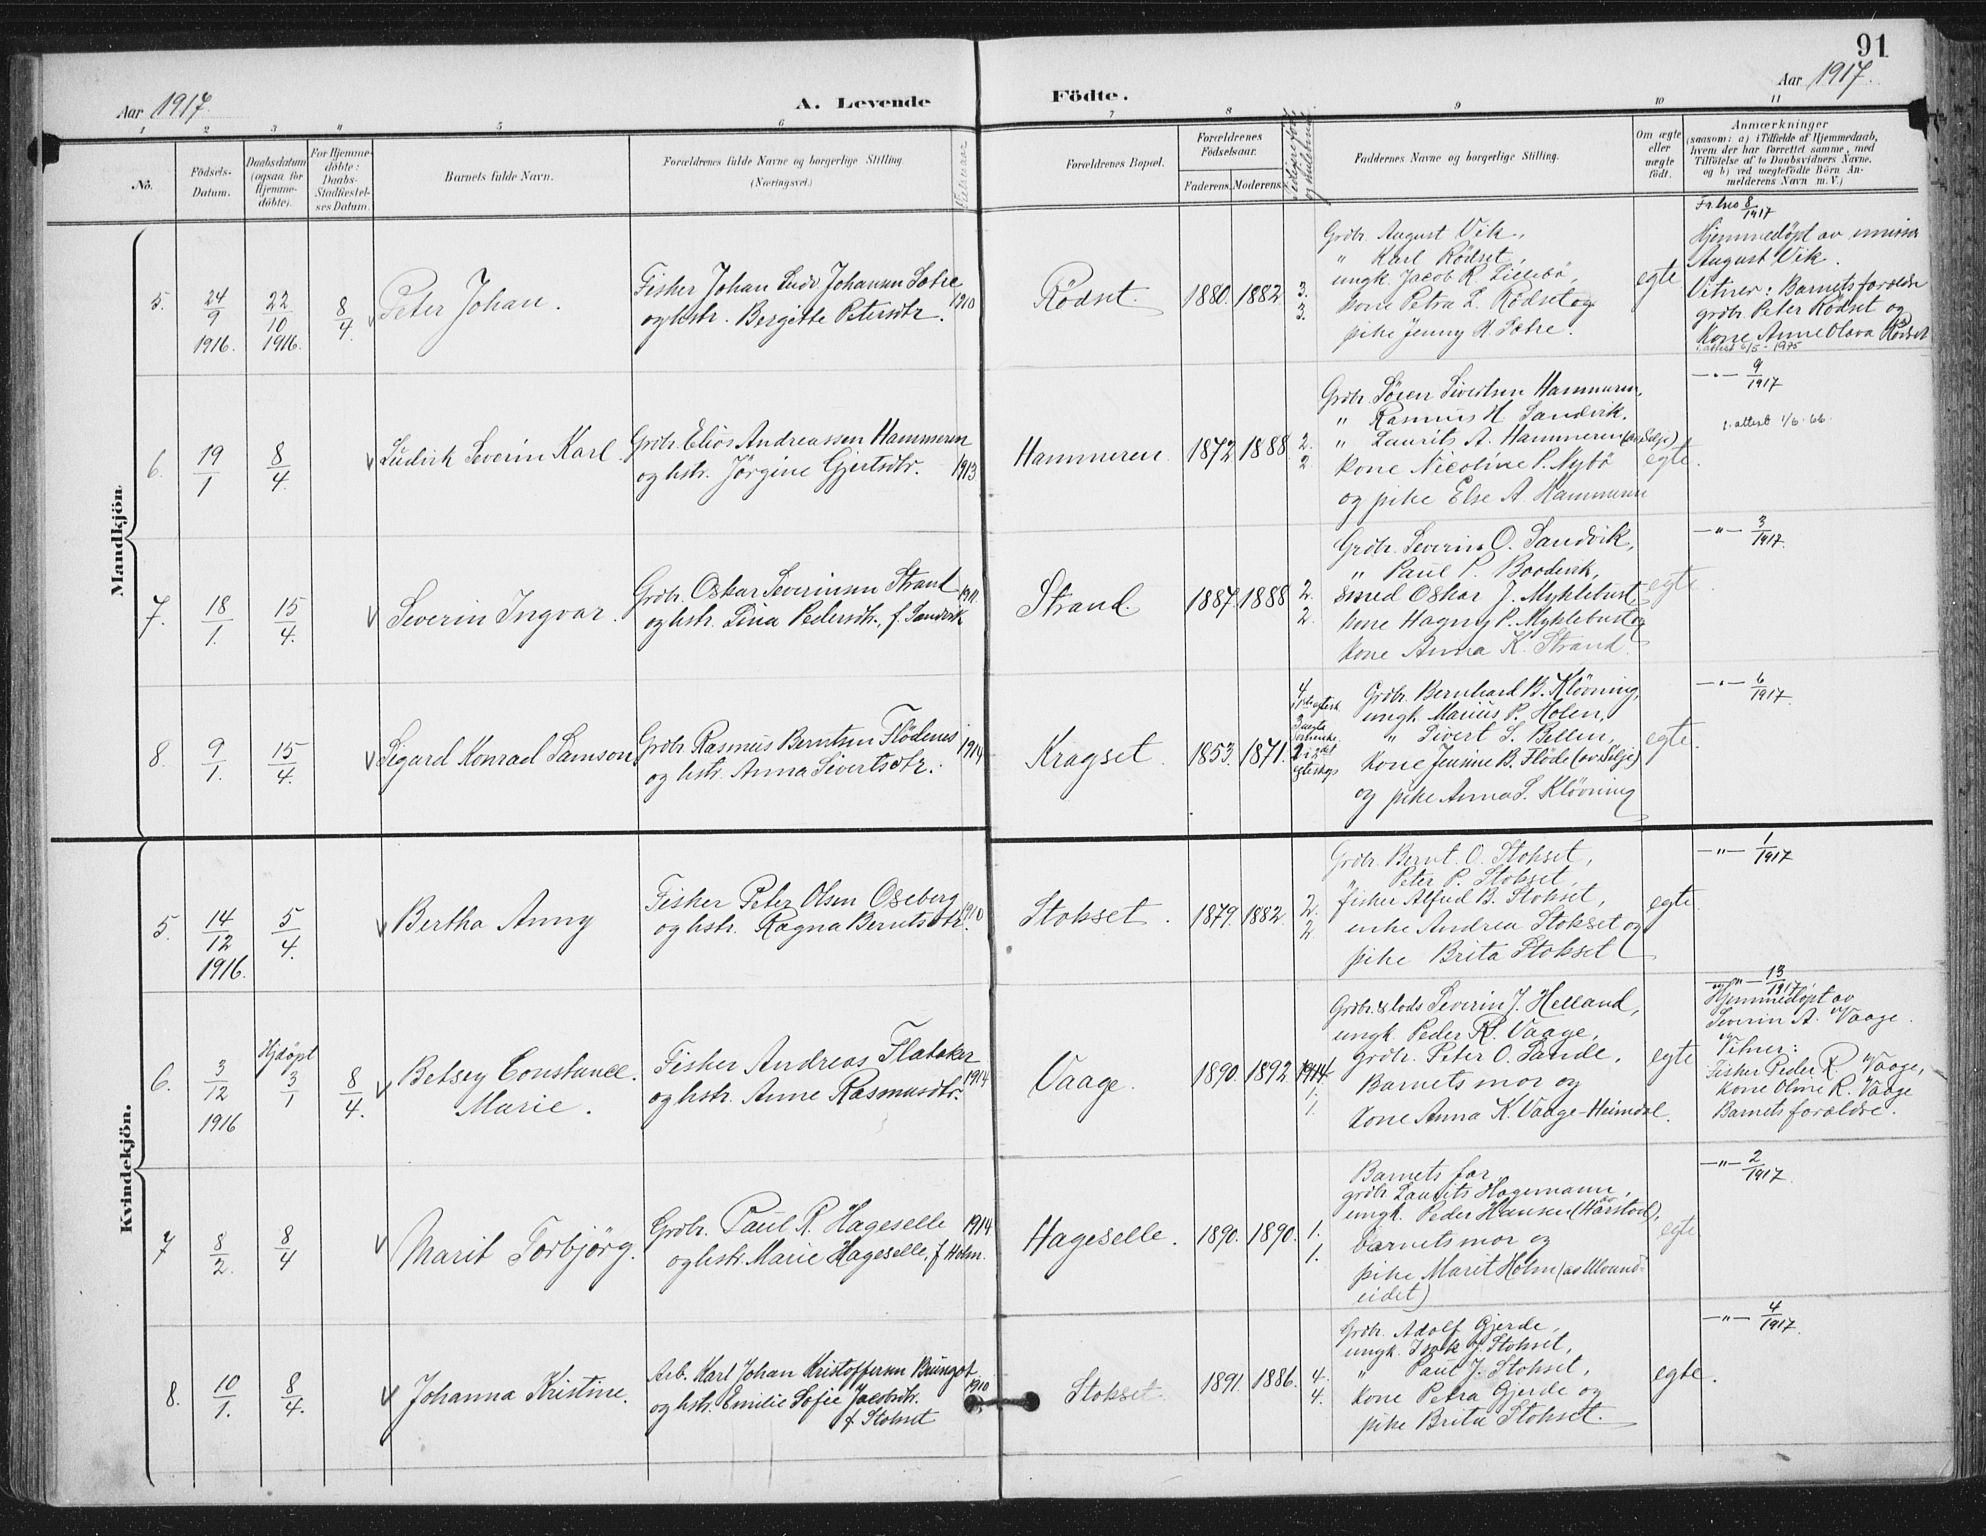 91
Aar 1917
A. Levende
Födte.
Aar 1917.
1 2 3 4 5 6 7 8 9 10 11
No.
Födsels-
Datum.
Daabsdatum
(ogsaa for
Hjemme-
döbte).
For Hjemme-
döbte:
Daabs-
Stadfæstel-
ses Datum.
Barnets fulde Navn.
Forældrenes fulde Navne og borgerlige Stilling
(Næringsvei.)
Forældrenes Bopæl.
Forældrenes
Födselsaar.
Faderens. Moderens.
Faddernes Navne og borgerlige Stilling.
Om ægte
eller
uægte
födt.
Anmærkninger
(saasom: a) i Tilfælde af Hjemmedaab,
hvem der har forrettet samme, med
Tilföielse af to Daabsvidners Navne.
og b) ved uægtefödte Börn An-
melderens Navn m. V.)
Mandkjön.
5.
24/9
1916.
22/10
1916.
8/4.
Peter Johan.
Fisher Johan Ludv Johansen Sætre
og hstr. Bergitte Petersdtr.
1910
Rödset.
1880. 1882.
3.
3.
Grdbr. August Vik,
" Karl Rödset,
ungk. Jacob R. Lillebö,
kone Petra L. Rödset og
pike Jenny H. Sætre.
egte
8/1917
Hjemmedöpt av
August Vik.
Vitner: Barnets forældre
grdbr. Peter Rödset og
kone Anne Olava Rödset
6.
19/1
8/4.
Ludvik Severin Karl
Grdbr. Elias Andreassen Hammeren
og hstr. Jörgine Gjertsdtr.
1913
Hammeren
1872 1888
2.
2
Grdbr. Sören Sivertsen Hammeren,
" Rasmus H. Sandvik.
" Laurits A. Hammeren (av Selje)
kone Nicoline P. Nybö
og pike Else A. Hammeren
egte.
—"— 9/1917
1. attest 1/6.66.
7.
18/1.
15/4.
Severin Ingvar.
Grdbr. Oskar Severinsen Strand
og hstr. Lina Pedersdtr., f. Sandvik
1911.
Strand.
1887. 1888
2.
2.
Grdbr. Severin O. Sandvik,
" Paul P.
smed Oskar J. Myklebust
kone Hagny P. Myklebust og
kone Anna K. Strand.
egte.
—"— 3/1917.
8.
9/1.
15/4.
Sigard Konrad Samson
Grdbr. Rasmus Berntsen Flödenes
og hstr. Anna Sivertsdtr.
1914
Kragset.
1853. 1871.
Grdbr. Bernhard B. Klövning,
ungk. Marius P. Holen,
" Sivert S.
kone Jenine B. Flöde (av Selje)
og pike Anna S. Klövning
egte.
—"— 6/1917.
Kvindekjön.
5.
14/12
1916.
5/4.
Bertha Anny
Fisher Peter Olsen Oseberg
og hstr. Ragna Berntsdtr.
1910
Stokset.
1879. 1882.
2.
2.
Grdbr. Bernt. O. Stokset,
" Peter P. Stokset,
fisher Alfred B. Stokset,
enke Andrea Stokset og
pike Brita Stokset
egte
—"— 1/1917
6.
3/12
1916
Hjdöpt
3/1
8/4.
Betsey Constance
Marie.
Fisher Andreas Flataker
og hstr. Anne Rasmusdtr.
1914
Vaage.
1890. 1892.
1914.
1.
1.
Grdbr. & lods Severin J. Helland,
ungk. Peder R. Vaage,
Grdbr. Peter O. Sande,
Barnets mor og
kone Anna K. Vaage-Heimdal.
egte
—"— 13/1917
Hjemmedöpt av
Severin A. Vaage.
Vitner:
Fisher Peder R. Vaage,
kone Oline R. Vaage
Barnets forældre.
7
8/2.
8/4
Marit Torbjörg.
Grdbr. Paul R. Hageselle
og hstr. Marie Hageselle, f. Holm.
1914
Hageselle.
1890. 1890.
1.
1.
Barnets far
grdbr. Laurits Hagemann,
ungk. Peder Hansen (av Harstad),
barnets mor og
pike Marit Holm (av Ulvund-
eidet)
egte
—"— 2/1917
8.
10/1.
8/4.
Johanna Kristine.
Arb. Karl Johan Kristoffersen Brungot
og hstr. Emilie Sofie Jacobsdtr.
f. Stokset
1910
Stokset.
1891. 1886.
4.
4.
Grdbr. Adolf Gjerde,
ungk. Isak J. Stokset,
" Paul J. Stokset,
kone Petra Gjerde og
pike Brita Stokset.
egte.
—"— 4/1917.